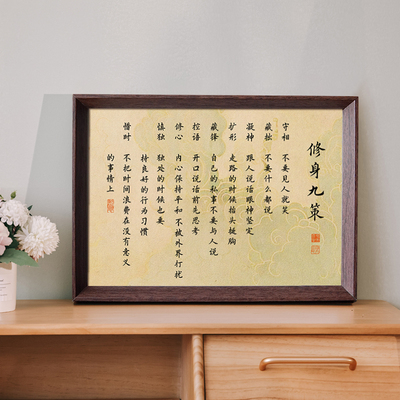 修身九策
守相 不要见人就笑
藏拙 不要什么都说
凝神 跟人说话眼神坚定
扩形 走路的时候抬头挺胸
藏锋 自己的私事不要与人说
控语 开口说话前先思考
修心 内心保持平和不被外界打扰
慎独 独处的时候也要
持良好的行为习惯
惜时 不把时间浪费在没有意义
的事情上